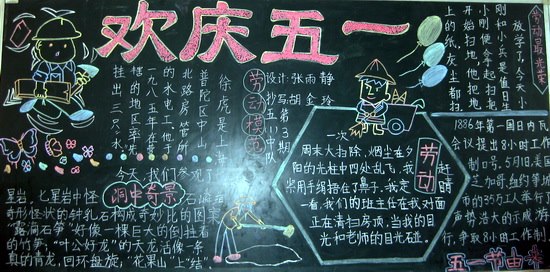 欢庆五一
劳动最光荣
放学了,今天小
刚和小兵是值日生
小刚便拿起扫把
开始扫地,他把地
上的纸,灰尘都扫
设计:张雨静
抄写:胡金玲
劳动模范
徐虎是上海
普陀区中山
北路房管所
的水电工,他于
一九八五年在
管的地区率先
挂出三只"水
今天,我们参观了
洞中奇景
石
星岩,七星岩中怪
奇形怪状的钟乳石构成奇妙比的图案
"露滴石笋"好像一棵巨大的倒挂着
的竹笋;"叶公好龙"的天龙活像一条
真的青龙,回环盘旋;"花果山"上"结"
劳动
一次
周末大扫除,烟尘在夕
阳的光柱中四处乱飞,我
用手绢捂在了鼻子,我定
睛一看,我们的班主任在我对面
正在清扫房顶,当我的目
光和老师的目光碰
1886年第一国日内瓦
会议提出8小时工作
制口号,5月1日,美国
芝加哥,纽约等城
市的35万工人举行了
声势浩大的示威游
行,争取8小时工作制
五一节由来